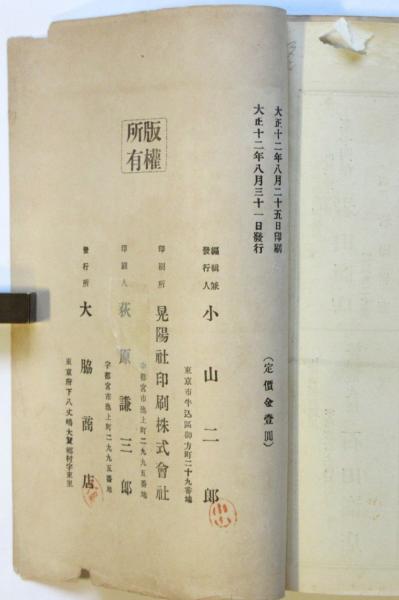 大正十二年八月二十五日印刷
大正十二年八月三十一日發行
(定價金壹圓)
版權
所有
編輯兼
發行人 小山二郎
東京市牛込區御方町二十九番地
印刷所 晃陽社印刷株式會社
宇都宮市池上町二九九五番地
印刷人 荻原謙三郎
宇都宮市池上町二九九五番地
發行所 大脇商店
東京府下八丈嶋大賀鄉村字東里